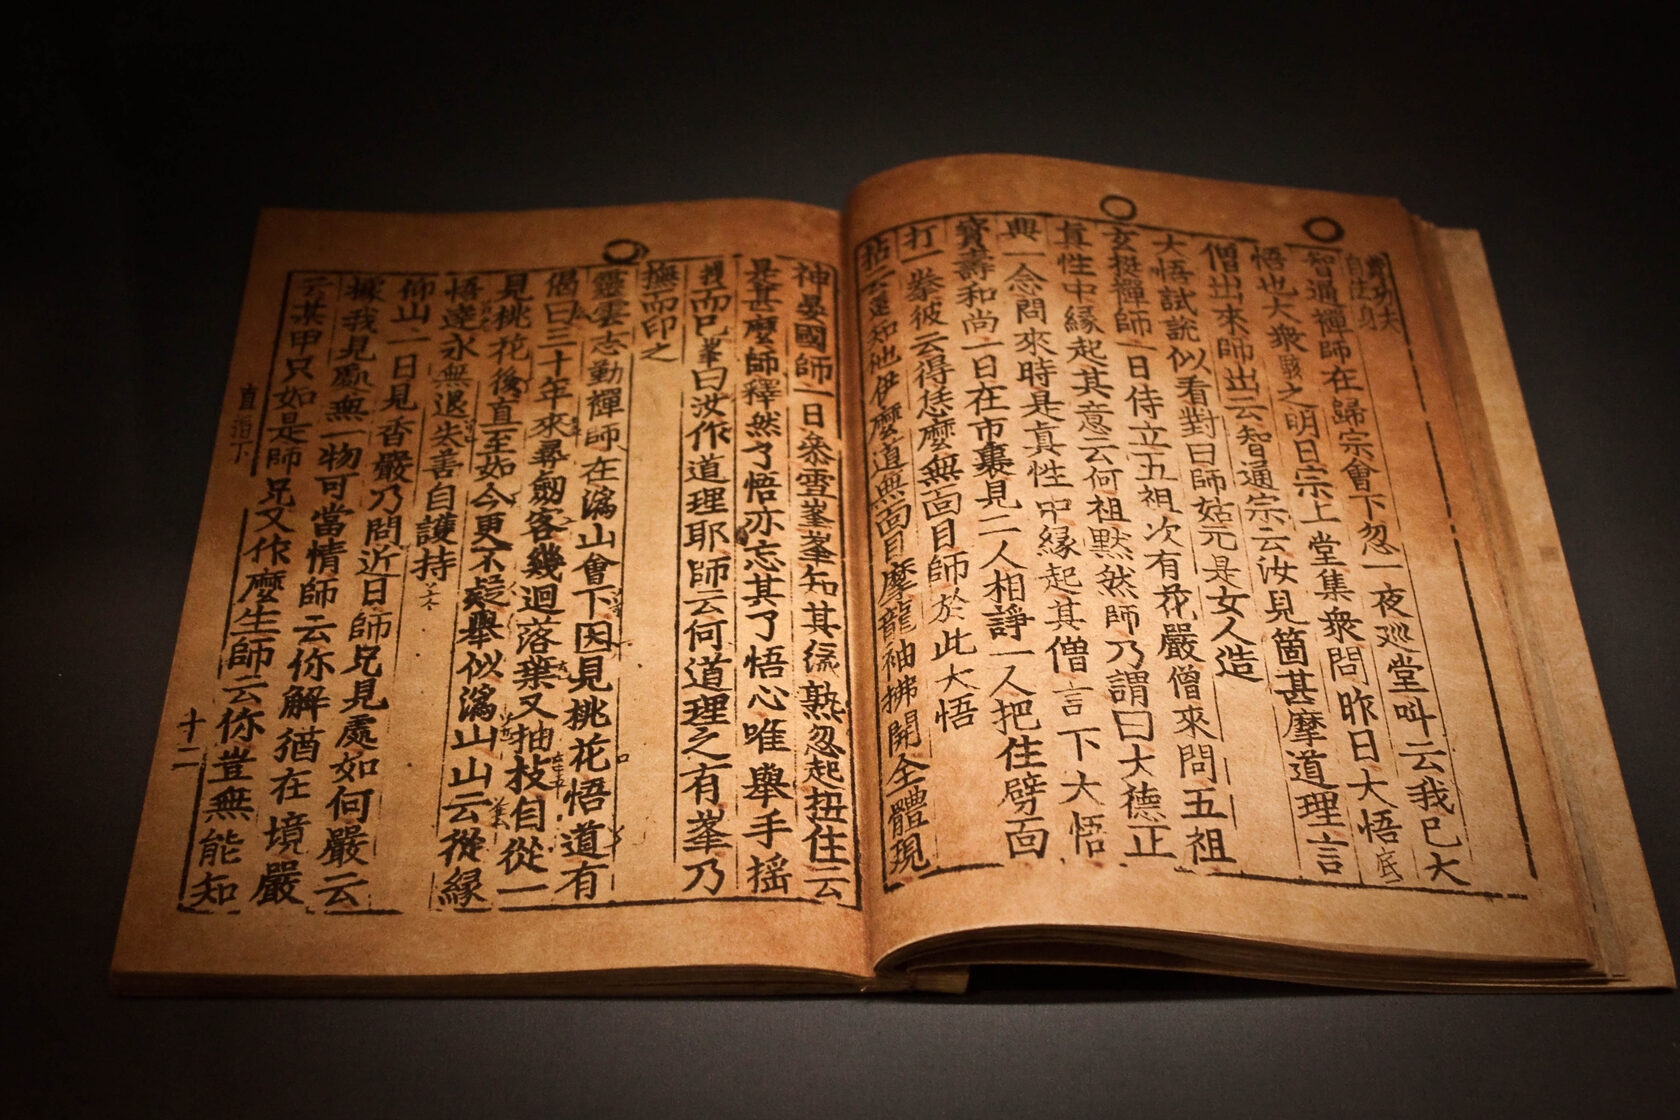 智通禪師在歸宗會下忽一夜巡堂叫云我已大
悟也大衆駭之明日宗上堂集衆問昨日大悟底
僧出來師出云智通宗云汝見箇甚摩道理言
大悟試說似看對曰師姑元是女人造
玄挺禪師一日侍立五祖次有花嚴僧來問五祖
真性中緣起其意云何祖默然師乃謂曰大德正
興一念問來時是真性中緣起其僧言下大悟
寶壽和尚一日在市裏見二人相諍一人把住劈面
打一拳彼云得恁麼無面目師於此大悟
拈云還知他伊麼道無面目摩龍袖拂開全體現
神晏國師一日叅雪峯峯知其緣熟忽起扭住云
是甚麼師釋然了悟亦忘其了悟心唯擧手搖
曳而已峯曰汝作道理耶師云何道理之有峯乃
撫而印之
靈雲志勤禪師在潙山會下因見桃花悟道有
偈曰三十年來尋劒客幾迴落葉又抽枝自從一
見桃花後直至如今更不疑擧似潙山山云從緣
悟達永無退失善自護持
仰山一日見香嚴乃問近日師兄見處如何嚴云
據我見處無一物可當情師云你解猶在境嚴
云某甲只如是師兄又作麼生師云你豈無能知
直指下
十二